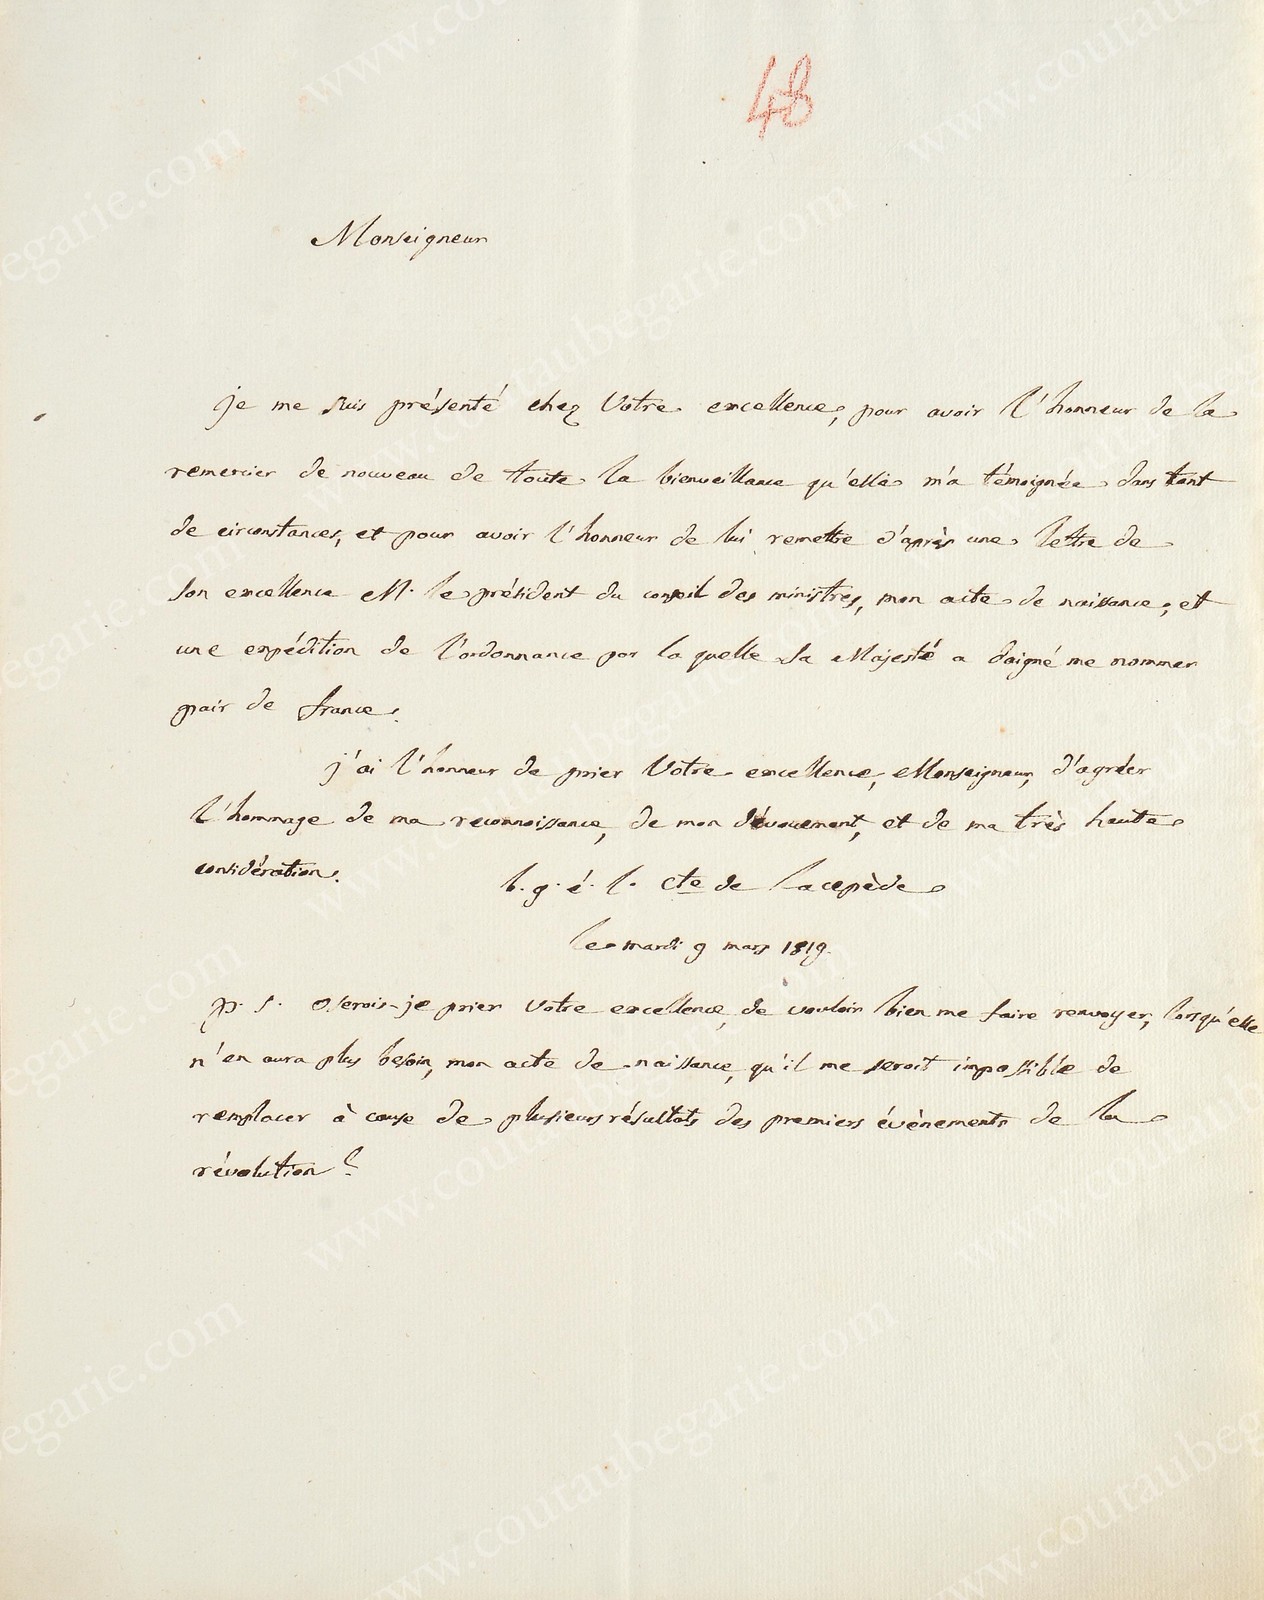 48
Monseigneur
je me suis présenté chez Votre excellence, pour avoir l'honneur de la
remercier de nouveau de toute la bienveillance qu'elle m'a témoignée dans tant
de circonstances, et pour avoir l'honneur de lui remettre d'après une lettre de
Son excellence M. le président du conseil des ministres, mon acte de naissance, et
une expédition de l'ordonnance par la quelle Sa Majesté a daigné me nommer
pair de france.
j'ai l'honneur de prier Votre excellence, Monseigneur, d'agréer
l'hommage de ma reconnoissance, de mon dévouement, et de ma très haute
considération.
b. g. é. l. cte de Lacepède
le mardi 9 mars 1819.
p. s. oserois-je prier Votre excellence, de vouloir bien me faire renvoyer, lorsqu'elle
n'en aura plus besoin, mon acte de naissance, qu'il me seroit impossible de
remplacer à cause de plusieurs résultats des premiers événements de la
révolution?
www.coutaubegarie.com